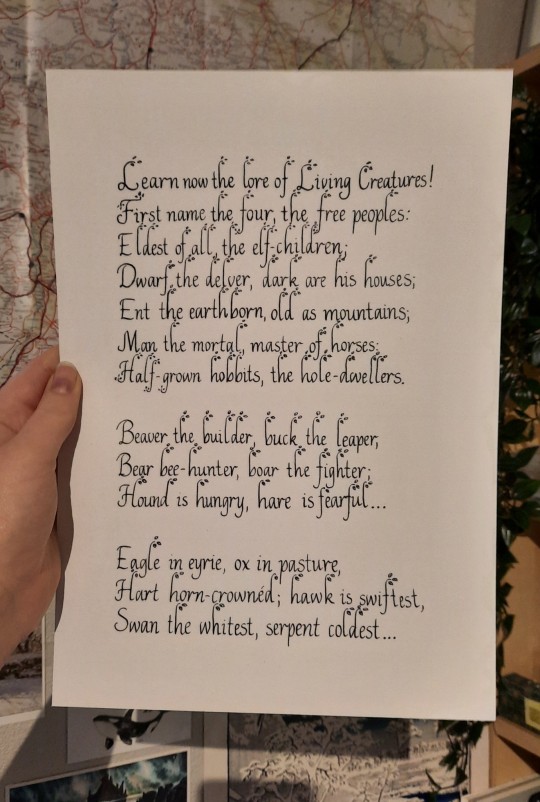 Learn now the lore of Living Creatures!
First name the four, the free peoples:
Eldest of all, the elf-children;
Dwarf the delver, dark are his houses;
Ent the earthborn, old as mountains;
Man the mortal, master of horses;
Half-grown hobbits, the hole-dwellers.
Beaver the builder, buck the leaper,
Bear bee-hunter, boar the fighter;
Hound is hungry, hare is fearful...
Eagle in eyrie, ox in pasture,
Hart horn-crownéd; hawk is swiftest,
Swan the whitest, serpent coldest...